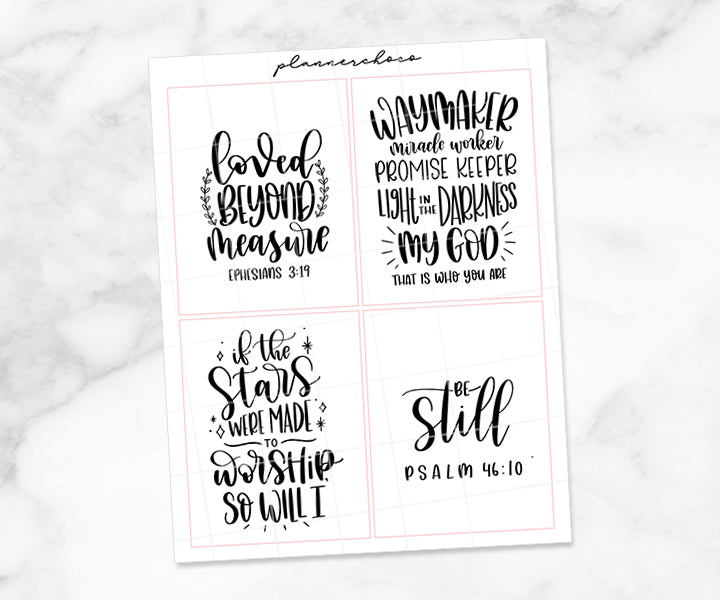 plannerchoco
loved
BEYOND
measure
EPHESIANS 3:19
WAYMAKER
miracle worker
PROMISE KEEPER
LIGHT IN THE DARKNESS
MY GOD
THAT IS WHO YOU ARE
if the
Stars
WERE MADE
TO
WORSHIP
SO WILL I
BE
Still
PSALM 46:10